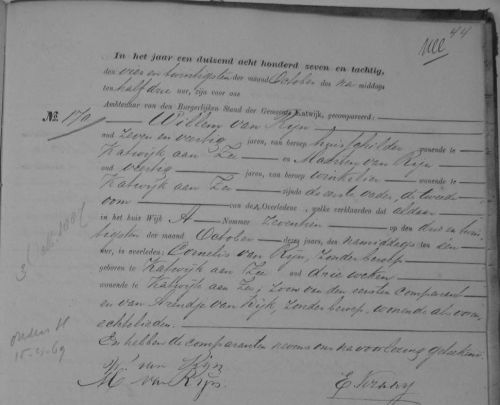 44
nee
In het jaar een duizend acht honderd zeven en tachtig,
den vier en twintigsten der maand October des na middags
ten half drie ure, zijn voor ons
Ambtenaar van den Burgerlijken Stand der Gemeente Katwijk, gecompareerd:
No. 170 Willem van Rijn
oud zeven en veertig jaren, van beroep huisschilder wonende te
Katwijk aan Zee en Maarten van Rijn
oud veertig jaren, van beroep winkelier wonende te
Katwijk aan Zee zijnde de eerste vader, de tweede
oom van de Overledene, welke verklaarden dat aldaar
in het huis Wijk A Nommer zeventien op den drie en twin
tigsten der maand October dezes jaars, des namiddags ten een
ure, is overleden: Cornelis van Rijn, zonder beroep
geboren te Katwijk aan Zee oud drie weken
wonende te Katwijk aan Zee; Zoon van den eersten comparant
en van Arendje van Rijk, zonder beroep, wonende als voren,
echtelieden.
En hebben de comparanten nevens ons na voorlezing geteekend.
W. van Rijn
M. van Rijn.